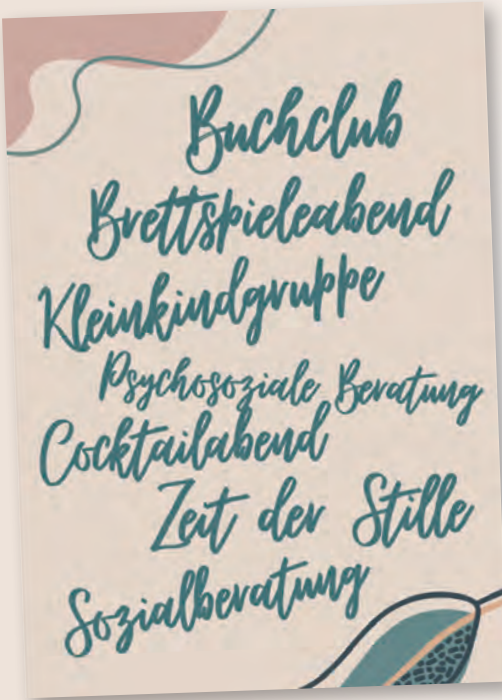 Buchclub
Brettspieleabend
Kleinkindgruppe
Psychosoziale Beratung
Cocktailabend
Zeit der Stille
Sozialberatung